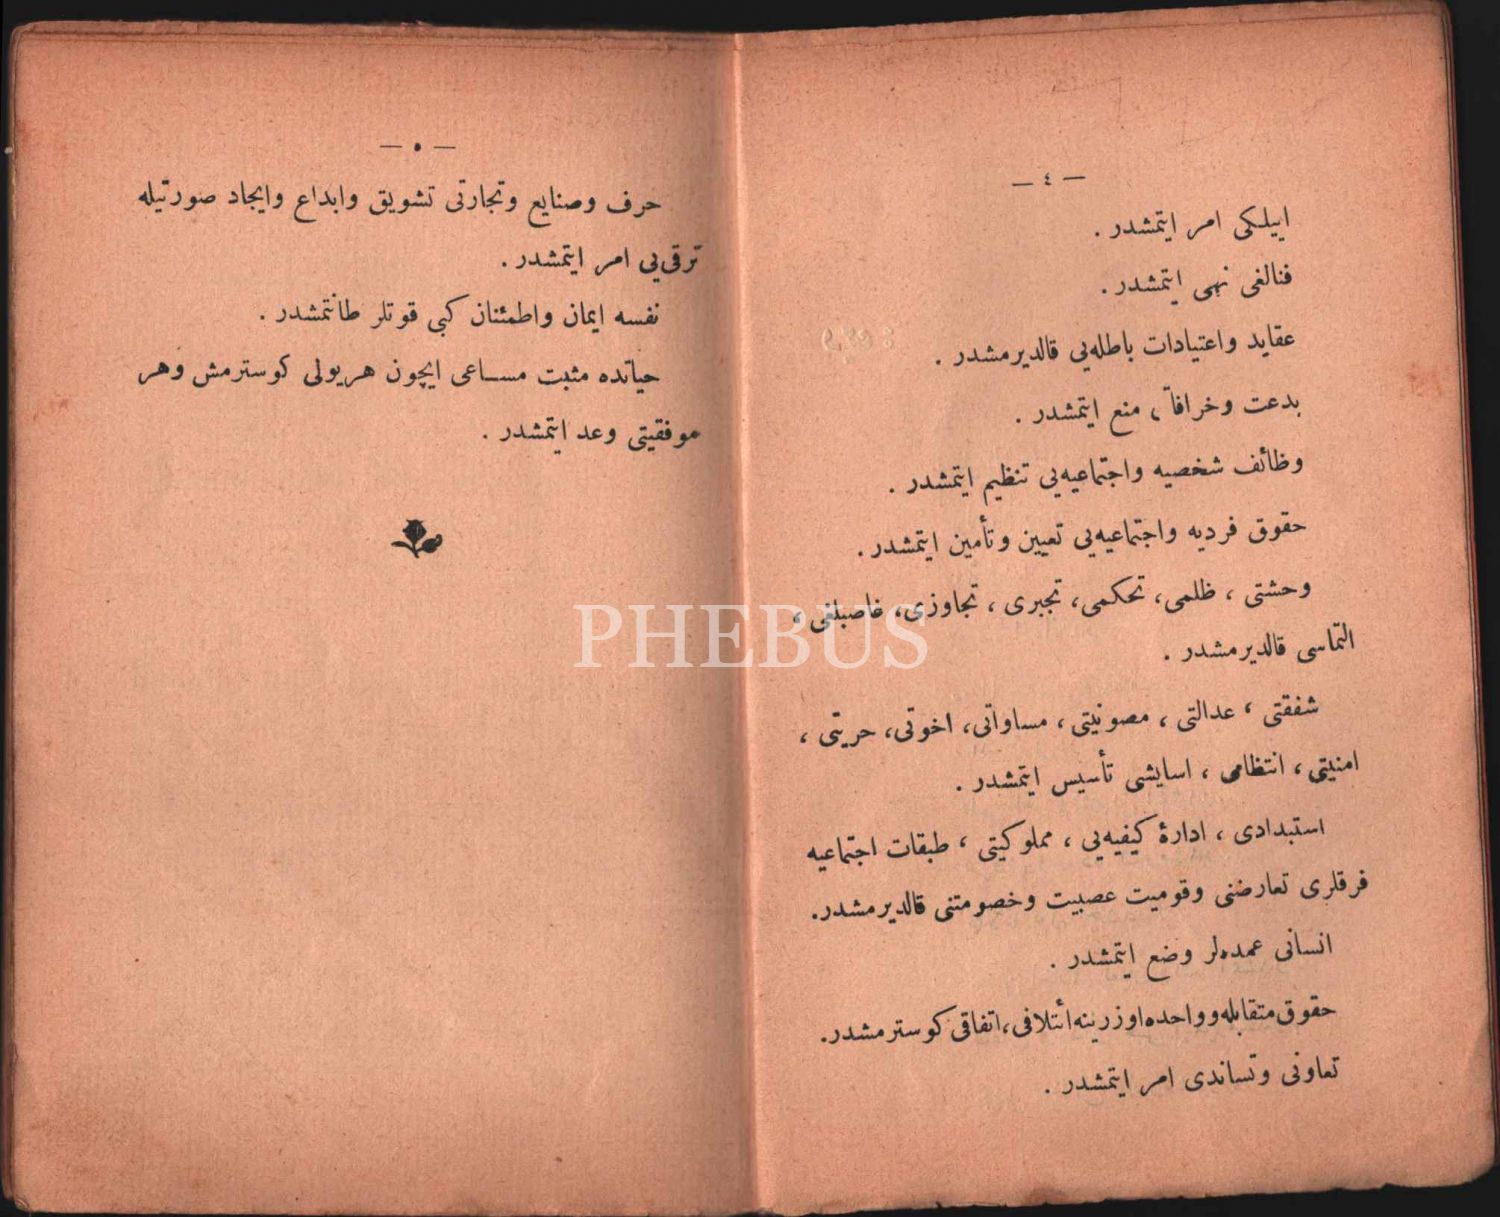 — ٤ —
اییلکی امر ایتمشدر .
فنالغی نهی ایتمشدر .
عقاید واعتیادات باطله‌یی قالدیرمشدر .
بدعت وخرافاتی منع ایتمشدر .
وظائف شخصیه واجتماعیه‌یی تنظیم ایتمشدر .
حقوق فردیه واجتماعیه‌یی تعیین وتأمین ایتمشدر .
وحشتی ، ظلمی ، تحکمی ، تجبری ، تجاوزی ، غاصبلغی ،
التماسی قالدیرمشدر .
شفقتی ، عدالتی ، مصونیتی ، مساواتی ، اخوتی ، حریتی ،
امنیتی ، انتظامی ، اسایشی تأسیس ایتمشدر .
استبدادی ، ادارۀ کیفیه‌یی ، مملوکیتی ، طبقات اجتماعیه
فرقلری تعارضنی وقومیت عصبیت وخصومتنی قالدیرمشدر .
انسانی عمده‌لر وضع ایتمشدر .
حقوق متقابله و واحده اوزرینه ائتلافی ، اتفاقی کوسترمشدر .
تعاونی وتساندی امر ایتمشدر .
— ٥ —
حرف وصنایع وتجارتی تشویق وابداع وایجاد صورتیله
ترقی‌یی امر ایتمشدر .
نفسه ایمان واطمئنان کبی قوتلر طانتمشدر .
حیاتده مثبت مساعی ایچون هریولی کوسترمش وهر
موفقیتی وعد ایتمشدر .
PHEBUS